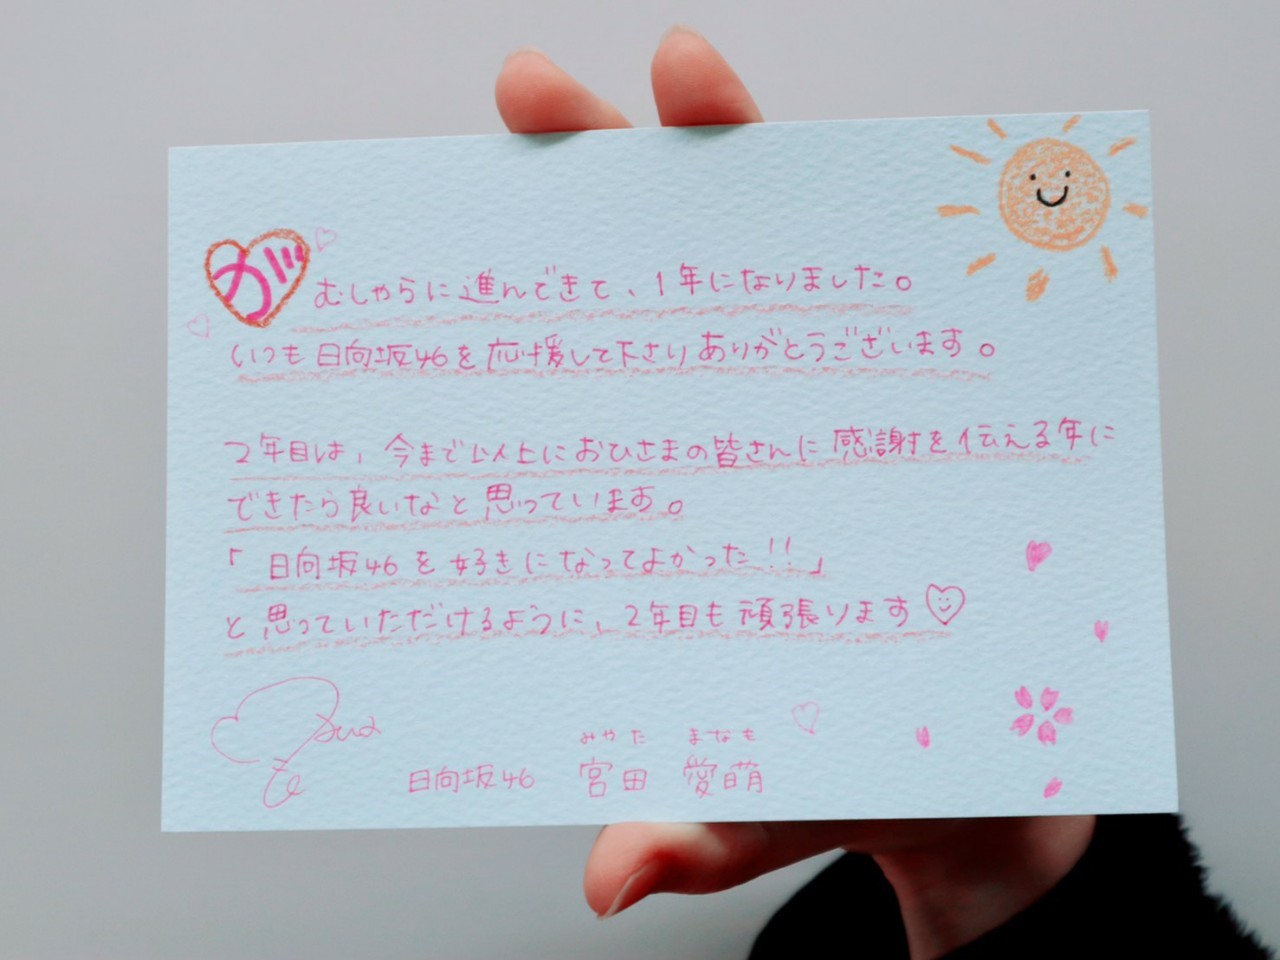 がむしゃらに進んできて、1年になりました。
いつも日向坂46を応援して下さりありがとうございます。
2年目は、今まで以上におひさまの皆さんに感謝を伝える年に
できたら良いなと思っています。
「日向坂46を好きになってよかった!!」
と思っていただけるように、2年目も頑張ります♡
みやた まなも
日向坂46 宮田 愛萌